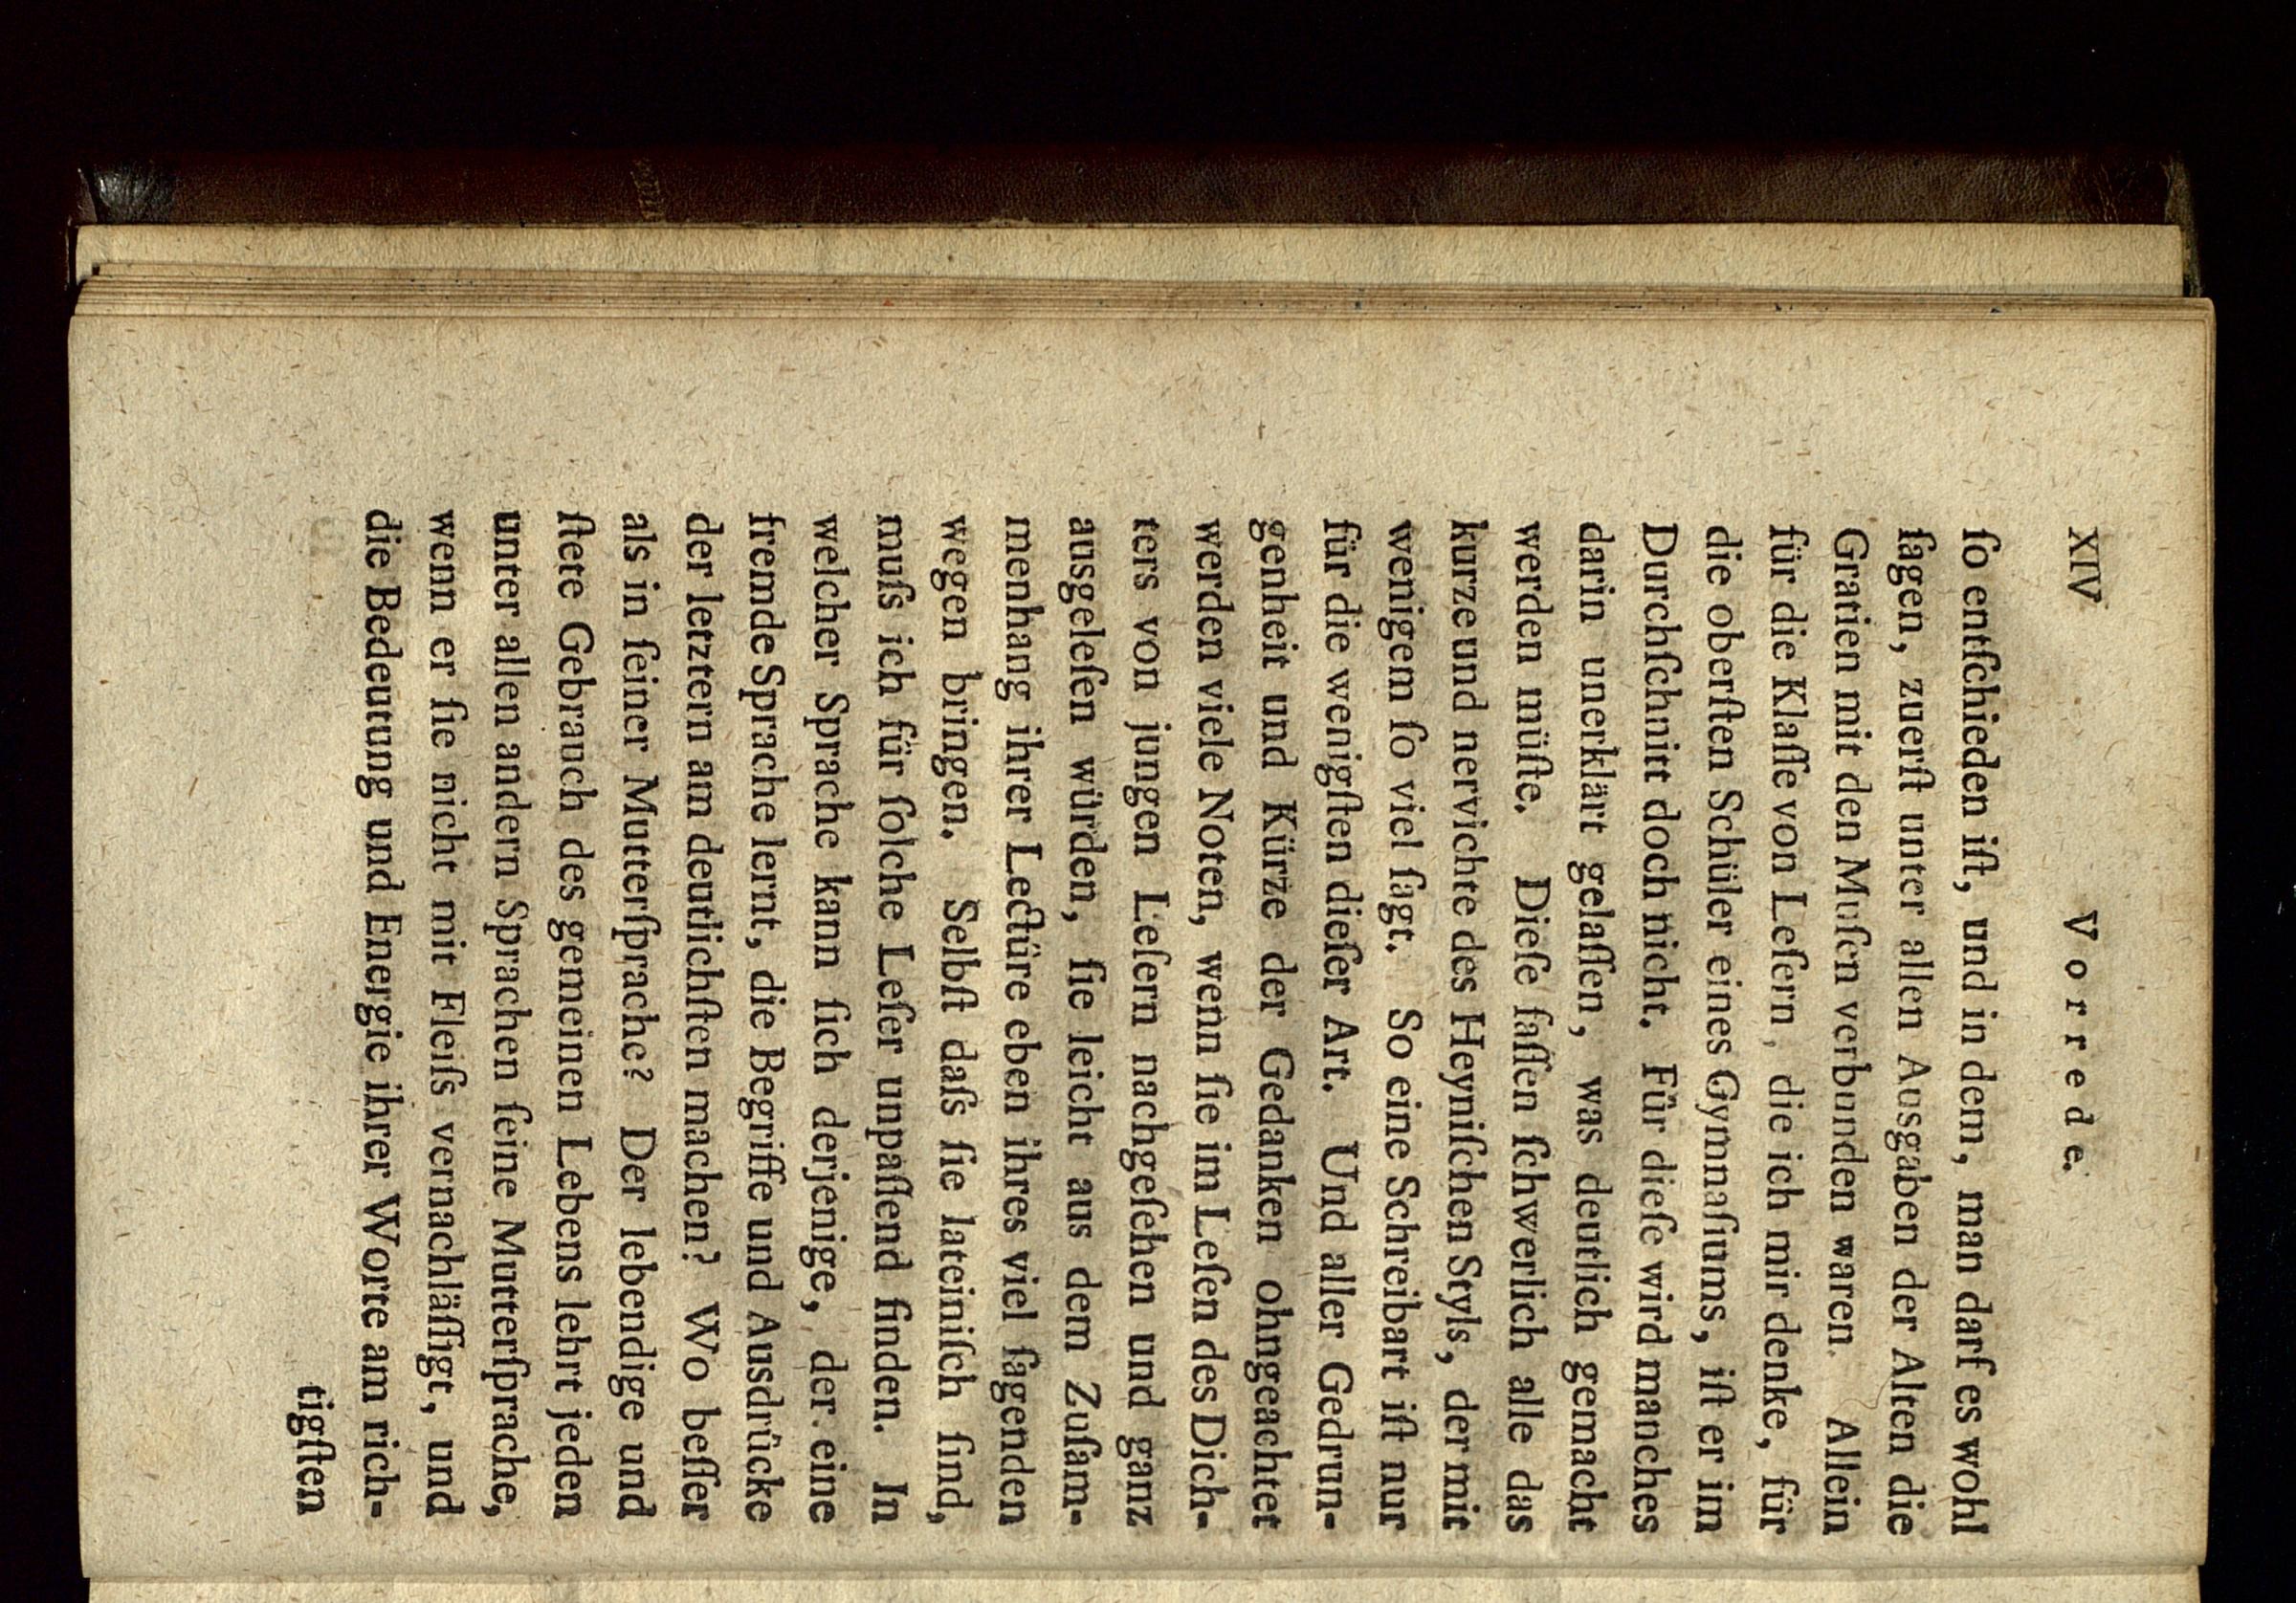 XIV Vorrede.
ſo entſchieden iſt, und in dem, man darf es wohl
ſagen, zuerſt unter allen Ausgaben der Alten die
Gratien mit den Muſen verbunden waren. Allein
für die Klaſſe von Leſern, die ich mir denke, für
die oberſten Schüler eines Gymnaſiums, iſt er im
Durchſchnitt doch nicht. Für dieſe wird manches
darin unerklärt gelaſſen, was deutlich gemacht
werden müſte. Dieſe faſſen ſchwerlich alle das
kurze und nervichte des Heyniſchen Styls, der mit
wenigem ſo viel ſagt. So eine Schreibart iſt nur
für die wenigſten dieſer Art. Und aller Gedrun-
genheit und Kürze der Gedanken ohngeachtet
werden viele Noten, wenn ſie im Leſen des Dich-
ters von jungen Leſern nachgeſehen und ganz
ausgeleſen würden, ſie leicht aus dem Zuſam-
menhang ihrer Lectüre eben ihres viel ſagenden
wegen bringen. Selbſt daſs ſie lateiniſch ſind,
muſs ich für ſolche Leſer unpaſſend finden. In
welcher Sprache kann ſich derjenige, der eine
fremde Sprache lernt, die Begriffe und Ausdrücke
der letztern am deutlichſten machen? Wo beſſer
als in ſeiner Mutterſprache? Der lebendige und
ſtete Gebrauch des gemeinen Lebens lehrt jeden
unter allen andern Sprachen ſeine Mutterſprache,
wenn er ſie nicht mit Fleiſs vernachläſſigt, und
die Bedeutung und Energie ihrer Worte am rich-
tigſten